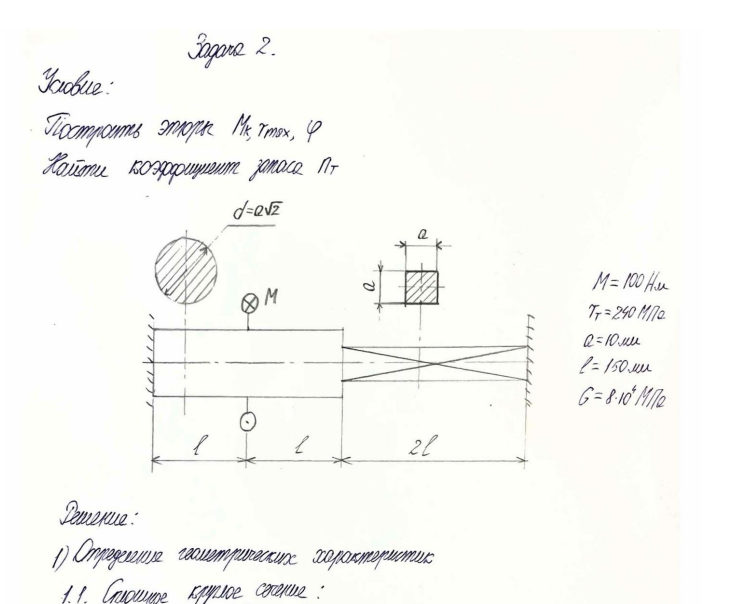 Задача 2.
Условие:
Построить эпюры Mк, τmax, φ
Найти коэффициент запаса nт
d=a√2
a
a
M
M=100 Нм
τт=240 МПа
a=10 мм
l=150 мм
G=8·10⁴ МПа
l
l
2l
Решение:
1) Определение геометрических характеристик
1.1. Сплошное круглое сечение: